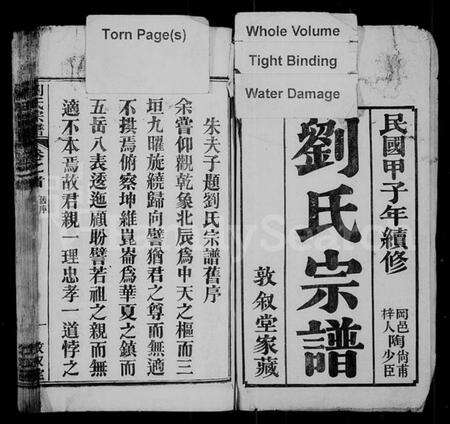 Torn Page(s)
Whole Volume
Tight Binding
Water Damage
民國甲子年續修
劉氏宗譜
敦叙堂家藏
岡邑陶尚甫
梓人 少臣
朱夫子題劉氏宗譜舊序
余嘗仰觀乾象北辰為中天之樞而三
垣九曜旋繞歸向譬猶君之尊而無適
不拱焉俯察坤維崑崙為華夏之鎮而
五岳八表逶迤顧盼譬若祖之親而無
適不本焉故君親一理忠孝一道悖之